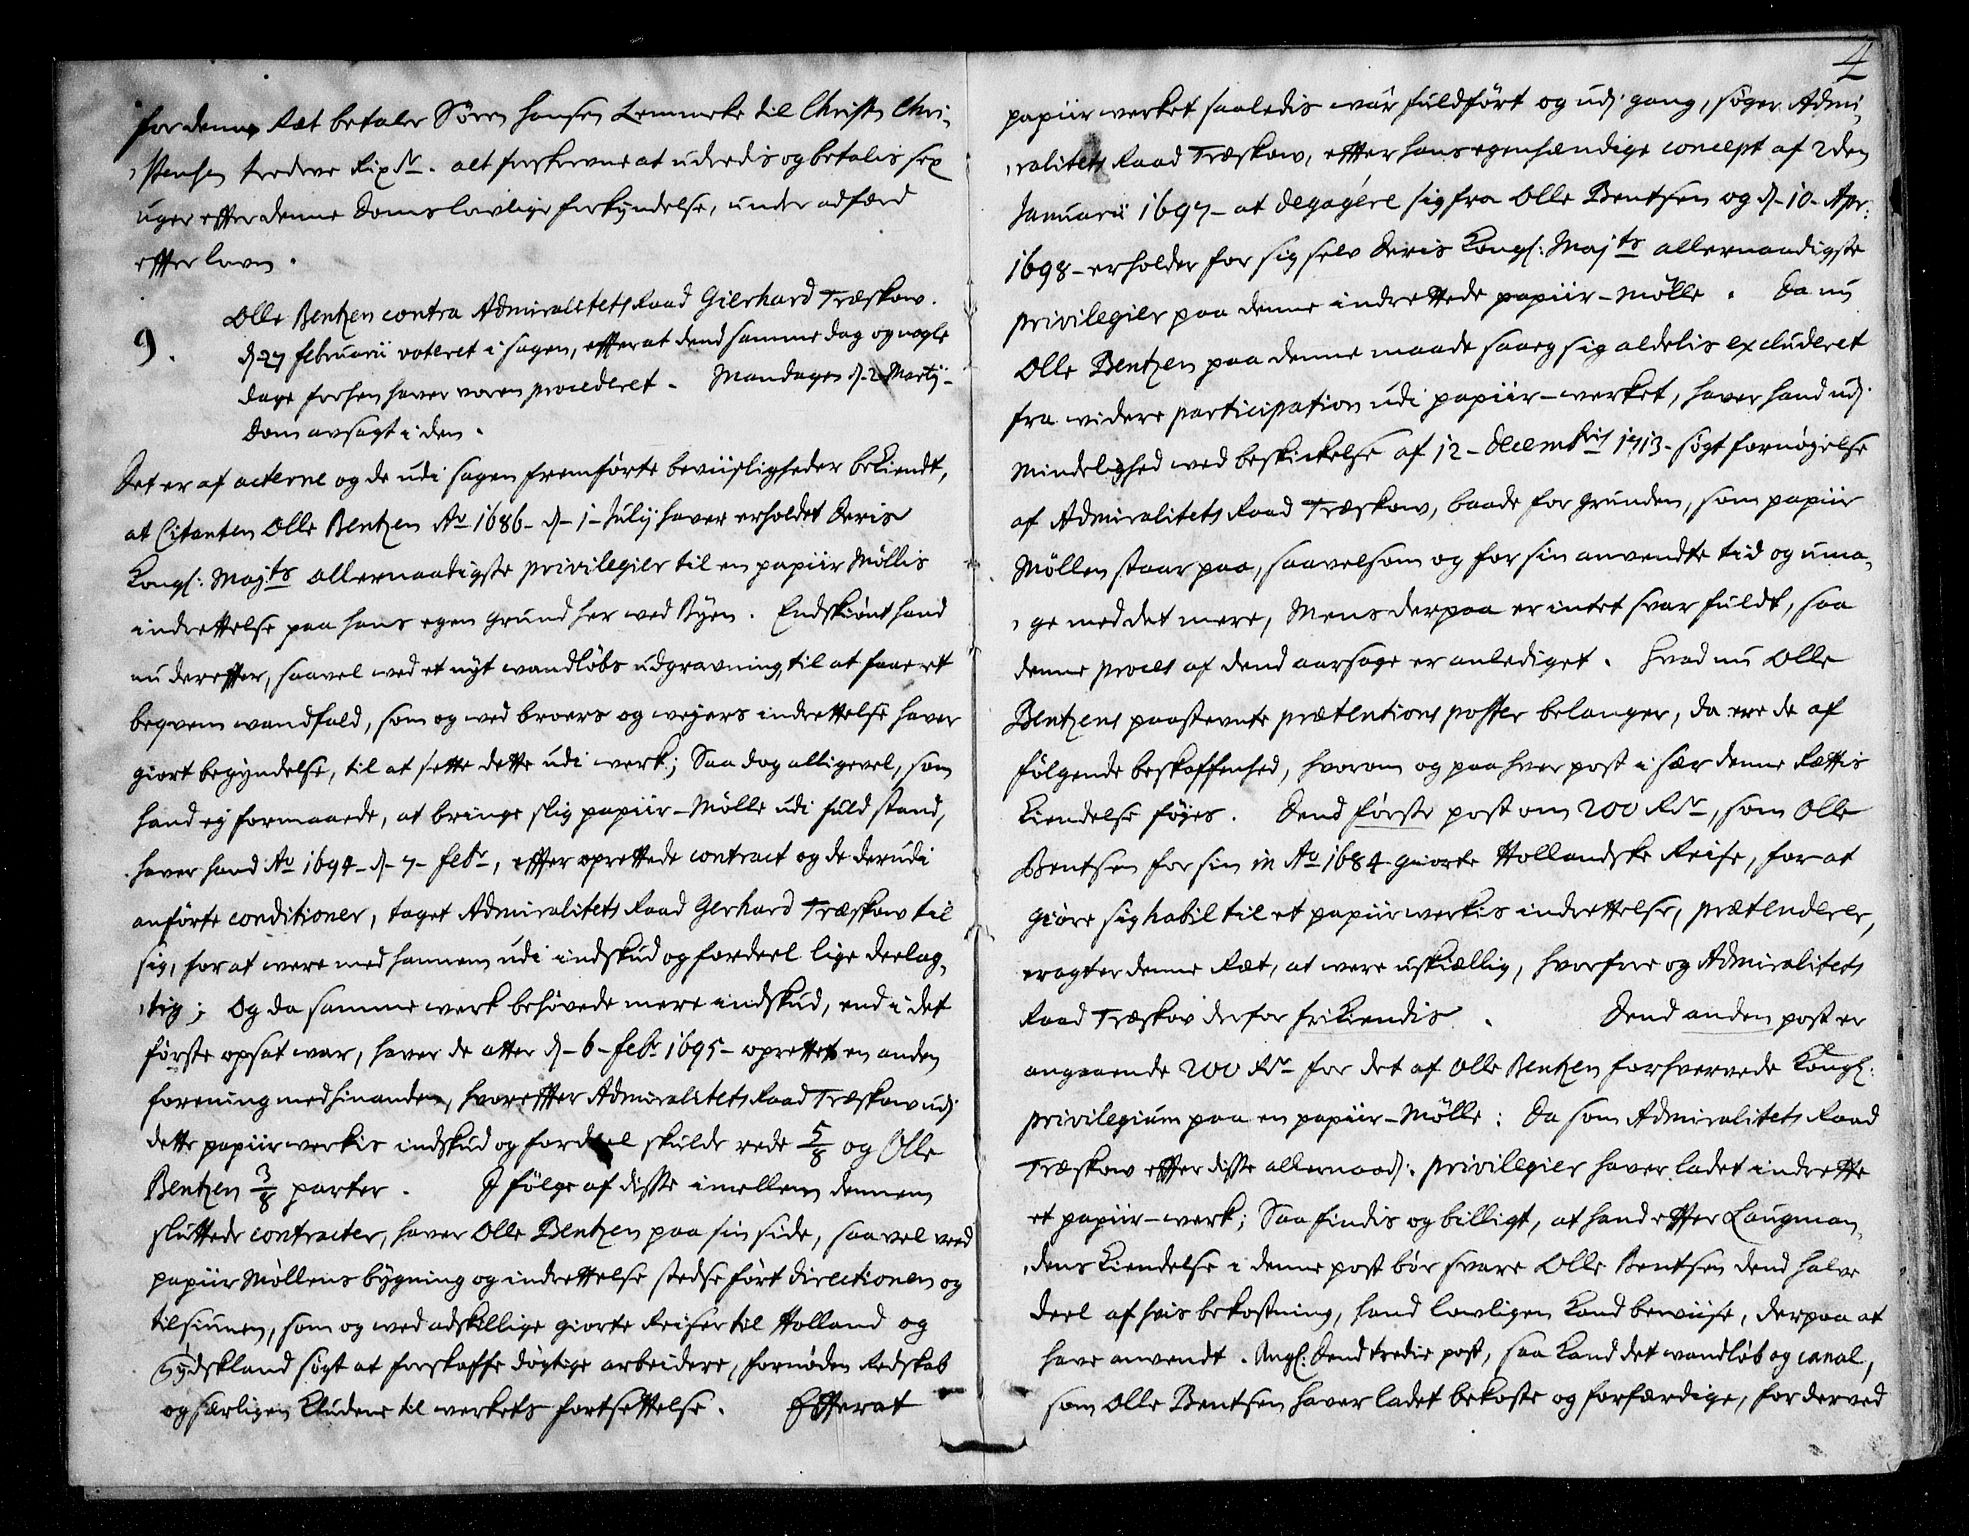 for denne Ræt betaler Søren Hansen Lemmeke til Christen Chri-
stensen tredeve Rixdr. alt forskrevne at udredis og betalis sex
uger effter denne Doms lovlige forkyndelse, under adfærd
effter loven.
9. Olle Bentzen contra Admiralitets Raad Gierhard Træskow.
d. 27 februarii voteret i sagen, effter at dend samme dag og nogle
dage forhen haver voren procederet. Mandagen d. 2 Martij
Dom avsagt i den.
Det er af acterne og de udi sagen fremførte beviisligheder bekiendt,
at Citanten Olle Bentzen Ao 1686 d. 1 Julij haver erholdet Deris
Kongl: Majts allernaadigste privilegier til en papiir Møllis
indrettelse paa hans egen grund her ved Byen. Endskiønt hand
nu dereffter, saavel ved et nyt wandløbs udgravning, til at faae et
beqvem wandfald, som og ved broers og weyers indrettelse haver
giort begyndelse, til at sette dette udi werk; Saa dog alligevel, som
hand ey formaaede, at bringe slig papiir-Mølle udi fuld stand,
haver hand Ao 1694 d. 7 febr, effter oprettede contract og de derudi
anførte conditioner, taget Admiralitets Raad Gerhard Træskow til
sig, for at were med hannem udi indskud og fordeel lige deelag-
tig; Og da samme werk behøvede mere indskud, end i det
første opsat war, haver de atter d. 6 febr 1695 oprettet en anden
forening med hinanden, hvoreffter Admiralitets Raad Træskow udj
dette papiir werkis indskud og fordeel skulde rede 5/8 og Olle
Bentzen 3/8 parter. J følge af disse imellem dennem
sluttede contracter, haver Olle Bentzen paa sin side, saavel ved
papiir Møllens bygning og indrettelse stedse ført directionen og
tilsiunen, som og ved adskillige giorte Reiser til Holland og
Tydskland søgt at forskaffe døgtige arbeidere, fornøden Redskab
og særligen Kludene til werkets fortsettelse. Effterat
4
papiir werket saaledis war fuldført og udj gang, søger Admi-
ralitets Raad Træskow, effter hans egenhændige concept af 2den
Januarii 1697 at degagere sig fra Olle Bentsen og d. 10 Apr:
1698 erholder for sig selv Deris Kongl: Majts allernaadigste
privilegier paa denne indrettede papiir-Mølle. Da nu
Olle Bentzen paa denne maade saaeg sig aldelis excluderet
fra widere participation udi papiir-werket, haver hand udj
Mindelighed ved beskickelse af 12 Decembris 1713 søgt fornøyelse
af Admiralitets Raad Træskow, baade for grunden, som papiir
Møllen staar paa, saavelsom og for sin anvendte tid og uma-
ge med det mere, Mens derpaa er intet svar fuldt, saa
denne proces af dend aarsage er anlediget. Hvad nu Olle
Bentzens paastevnte prætentions poster belanger, da ere de af
følgende beskaffenhed, hvorom og paa hver post i sær denne Rættis
Kiendelse føyes. Dend første post om 200 Rdr, som Olle
Bentsen for sin in Ao 1684 giorte Hollandske Reise, for at
giøre sig habil til et papiir werkis indrettelse, prætenderer,
eragter denne Ræt, at were uskiellig, hvorfore og Admiralitets
Raad Træskov derfor frikiendis. Dend anden post er
angaaende 200 Rdr for det af Olle Bentzen forhvervede Kongl:
privilegium paa en papiir-Mølle: Da som Admiralitets Raad
Træskow effter disse allernaad: privilegier haver ladet indrette
et papiir-werk; Saa findis og billigt, at hand effter Laugman-
dens Kiendelse i denne post bør svare Olle Bentsen dend halve
deel af hvis bekostning, hand lovligen kand beviise, derpaa at
have anvendt. Angl: Dend tredie post, saa kand det wandløb og canal,
som Olle Bentsen haver ladet bekoste og forfærdige, for derved